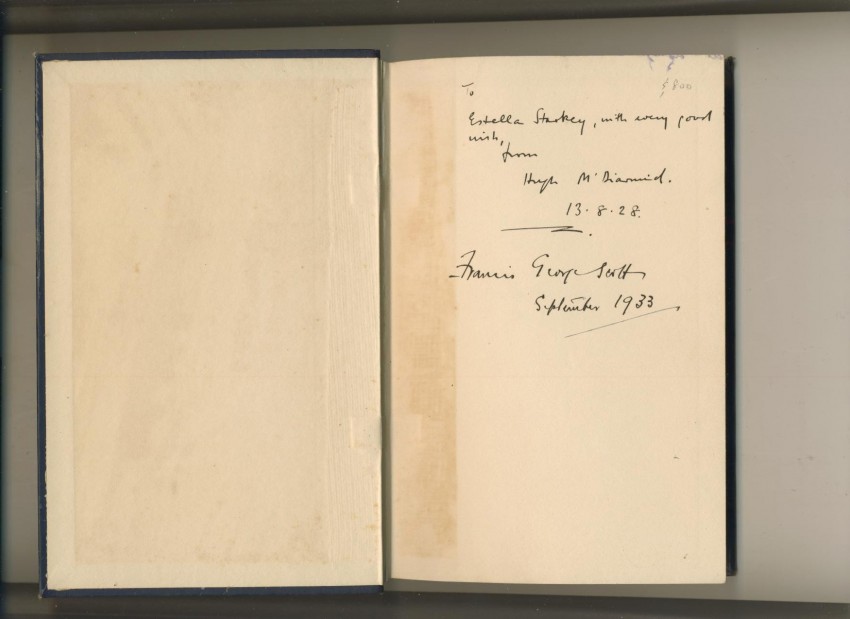 To
$800
Estella Starkey, with every good
wish,
from
Hugh M'Diarmid.
13.8.28.
Francis George Scott
September 1933